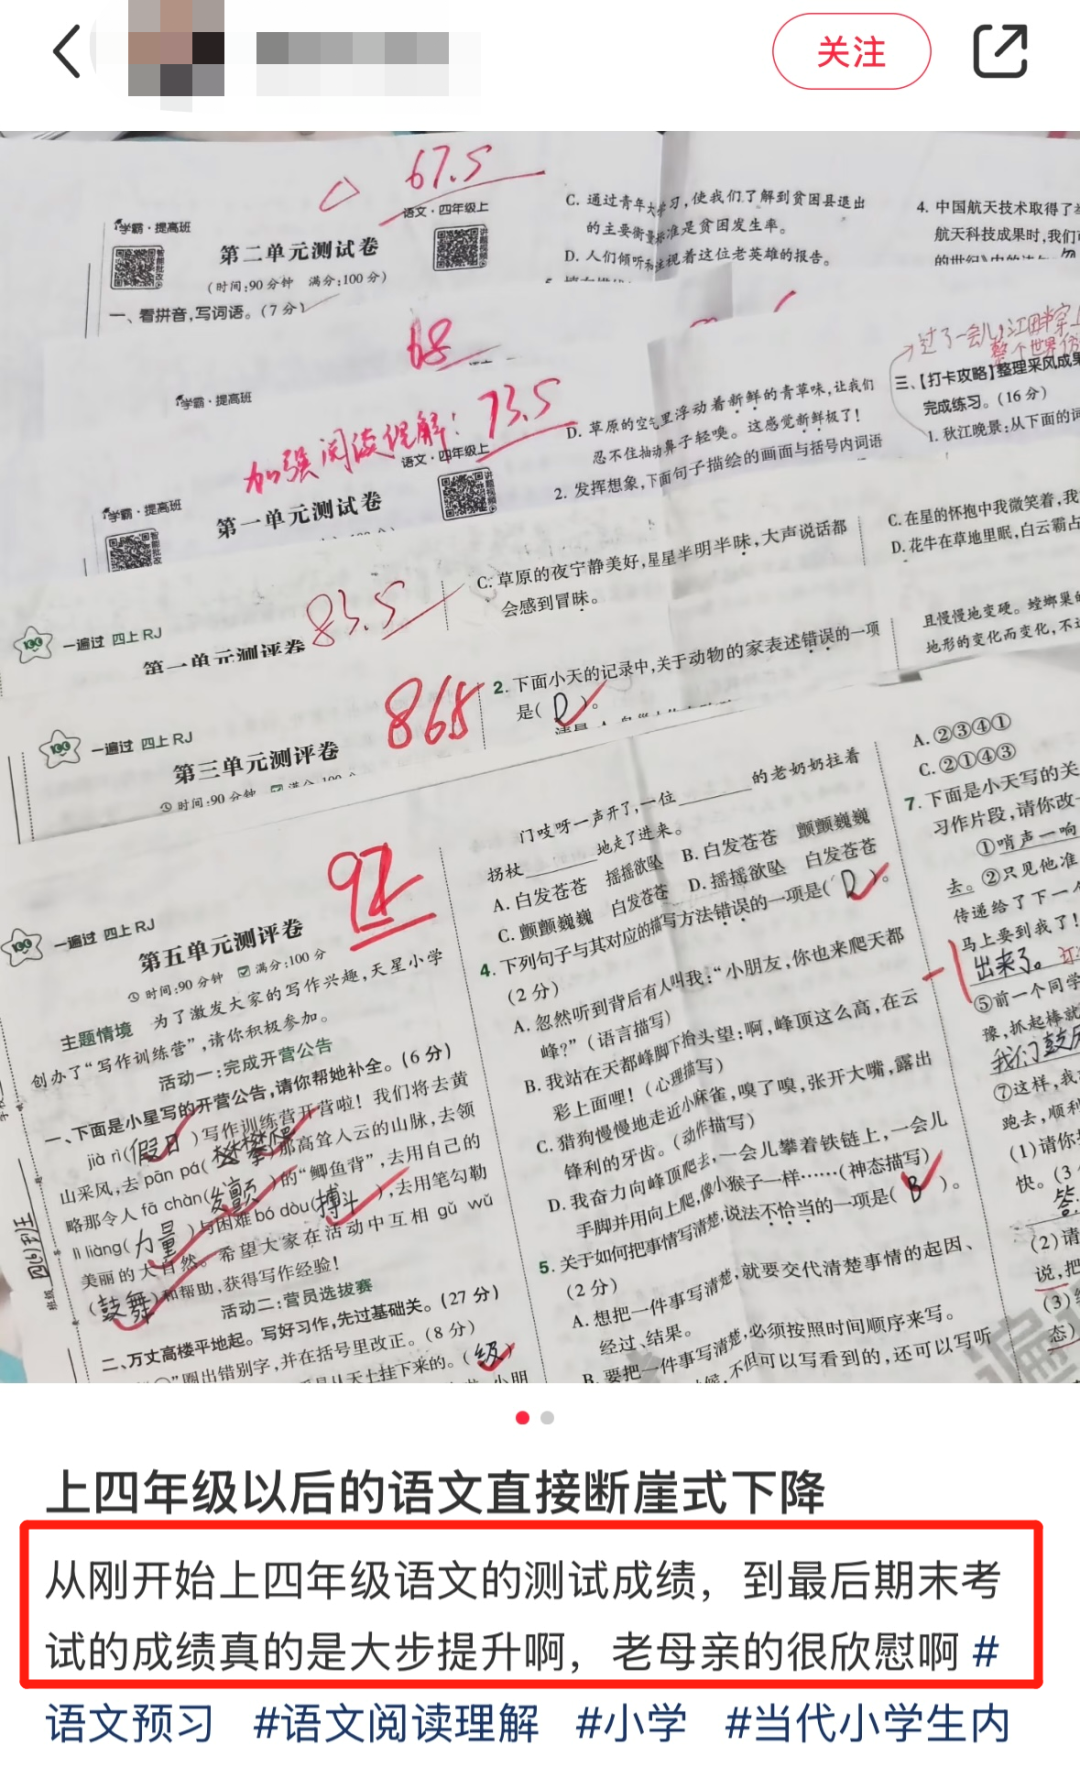 关注
67.5
语文·四年级上
学霸·提高班
第二单元测试卷
(时间:90分钟 满分:100分)
一、看拼音,写词语。(7分)
C. 通过青年大学习,使我们了解到贫困县退出
的主要衡量标准是贫困发生率。
D. 人们倾听和注视着这位老英雄的报告。
4. 中国航天技术取得了
航天科技成果时,我们
68
学霸·提高班
加强阅读理解: 73.5
语文·四年级上
学霸·提高班
第一单元测试卷
D. 草原的空气里浮动着新鲜的青草味,让我们
忍不住抽动鼻子轻嗅。这感觉新鲜极了!
2. 发挥想象,下面句子描绘的画面与括号内词语
过了一会儿,江田畔穿上
整个世界
三、【打卡攻略】整理采风成果
完成练习。(16分)
1. 秋江晚景:从下面的词
83.5
一遍过 四上RJ
第一单元测评卷
C. 草原的夜宁静美好,星星半明半昧,大声说话都
会感到冒昧。
C. 在星的怀抱中我微笑着,我
D. 花牛在草地里眠,白云霸占
86.5
一遍过 四上RJ
第三单元测评卷
时间:90分钟 满分:100分
2. 下面小天的记录中,关于动物的家表述错误的一项
是( D )。
且慢慢地变硬。螳螂巢的
地形的变化而变化,不
92
一遍过 四上RJ
第五单元测评卷
时间:90分钟 满分:100分
主题情境 为了激发大家的写作兴趣,天星小学
创办了“写作训练营”,请你积极参加。
活动一:完成开营公告
一、下面是小星写的开营公告,请你帮她补全。(6分)
jià rì(假日)写作训练营开营啦!我们将去黄
山采风,去pān pá(攀爬)那高耸入云的山脉,去领
略那令人fā chàn(发颤)的“鲫鱼背”,去用自己的
lì liàng(力量)与困难bó dòu(搏斗),去用笔勾勒
美丽的大自然。希望大家在活动中互相gǔ wǔ
(鼓舞)和帮助,获得写作经验!
活动二:营员选拔赛
二、万丈高楼平地起。写好习作,先过基础关。(27分)
圈出错别字,并在括号里改正。(8分)
从天上挂下来的。(级)
门吱呀一声开了,一位______的老奶奶拄着
拐杖______地走了进来。
A. 白发苍苍 摇摇欲坠 B. 白发苍苍 颤颤巍巍
C. 颤颤巍巍 白发苍苍 D. 摇摇欲坠 白发苍苍
4. 下列句子与其对应的描写方法错误的一项是( D )。
(2分)
A. 忽然听到背后有人叫我:“小朋友,你也来爬天都
峰?”(语言描写)
B. 我站在天都峰脚下抬头望:啊,峰顶这么高,在云
彩上面哩!(心理描写)
C. 猎狗慢慢地走近小麻雀,嗅了嗅,张开大嘴,露出
锋利的牙齿。(动作描写)
D. 我奋力向峰顶爬去,一会儿攀着铁链上,一会儿
手脚并用向上爬,像小猴子一样……(神态描写)
5. 关于如何把事情写清楚,说法不恰当的一项是( B )。
(2分)
A. 想把一件事写清楚,就要交代清楚事情的起因、
经过、结果。
B. 要把一件事写清楚,必须按照时间顺序来写。
不但可以写看到的,还可以写听
A. ②③④①
C. ②①④③
7. 下面是小天写的关
习作片段,请你改
①哨声一响
去。②只见他准
传递给了下一个
马上要到我了!
出来了。
⑤前一个同学
豫,抓起棒就
我们鼓
⑦这样,我
跑去,顺利
(1)请你
快。(3
答:
(2)请
说,把
(3)
态)
四(6)班
上四年级以后的语文直接断崖式下降
从刚开始上四年级语文的测试成绩，到最后期末考
试的成绩真的是大步提升啊，老母亲的很欣慰啊 #
语文预习 #语文阅读理解 #小学 #当代小学生内